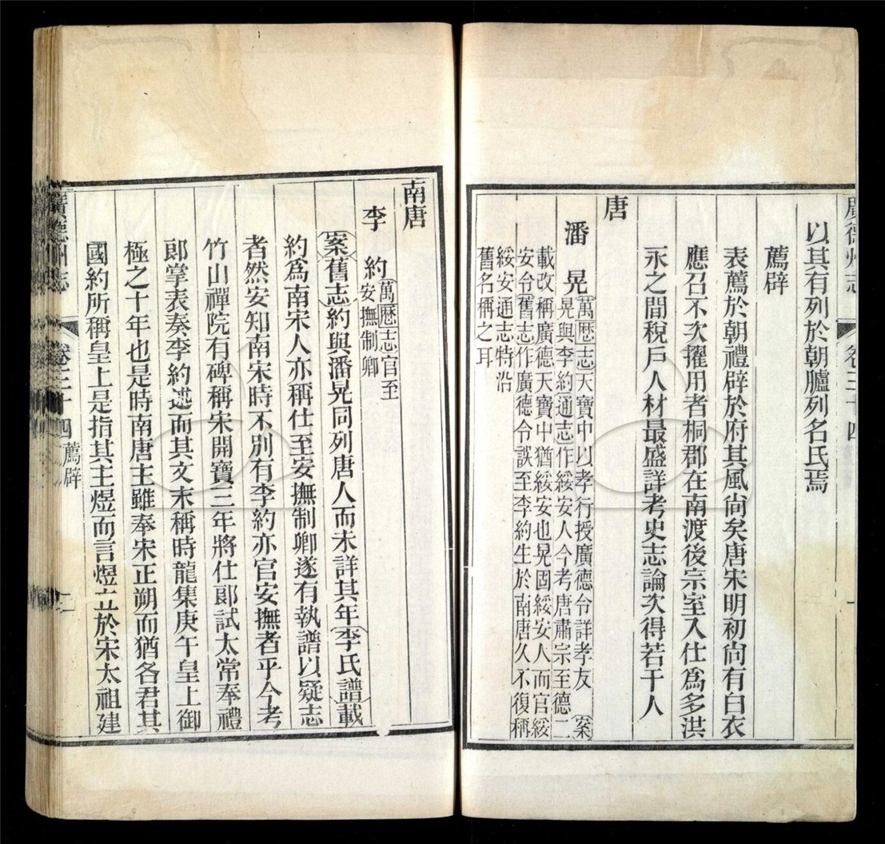 廣德州志 卷三十四
以其有列於朝臚列名氏焉
薦辟
表薦於朝禮辟於府其風尚矣唐宋明初尚有白衣
應召不次擢用者桐郡在南渡後宗室入仕爲多洪
永之間稅戶人材最盛詳考史志論次得若干人
唐
潘晃
萬厯志天寶中以孝行授廣德令詳孝友 案
晃與李約通志作綏安人今考唐肅宗至德二
載改稱廣德天寶中猶綏安也晃固綏安人而官綏
安令舊志作廣德令誤至李約生於南唐久不復稱
綏安通志特沿
舊名稱之耳
南唐
李 約
萬厯志官至
安撫制卿
案舊志約與潘晃同列唐人而未詳其年李氏譜載
約爲南宋人亦稱仕至安撫制卿遂有執譜以疑志
者然安知南宋時不別有李約亦官安撫者乎今考
竹山禪院有碑稱宋開寶三年將仕郎試太常奉禮
郎掌表奏李約述而其文末稱時龍集庚午皇上御
極之十年也是時南唐主雖奉宋正朔而猶各君其
國約所稱皇上是指其主煜而言煜立於宋太祖建
廣德州志 卷三十四 薦辟